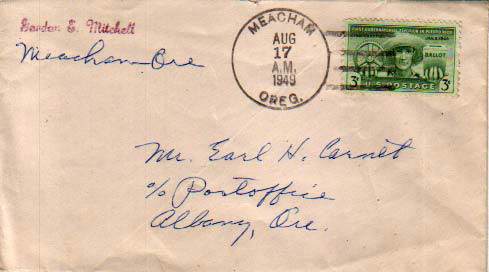 Gordon S. Mitchell
Meacham Ore
MEACHAM
AUG
17
A.M.
1949
OREG.
FIRST GUBERNATORIAL ELECTION IN PUERTO RICO
BALLOT
3¢ U.S. POSTAGE 3¢
Mr. Earl H. Carnet
c/o Postoffice
Albany, Ore.